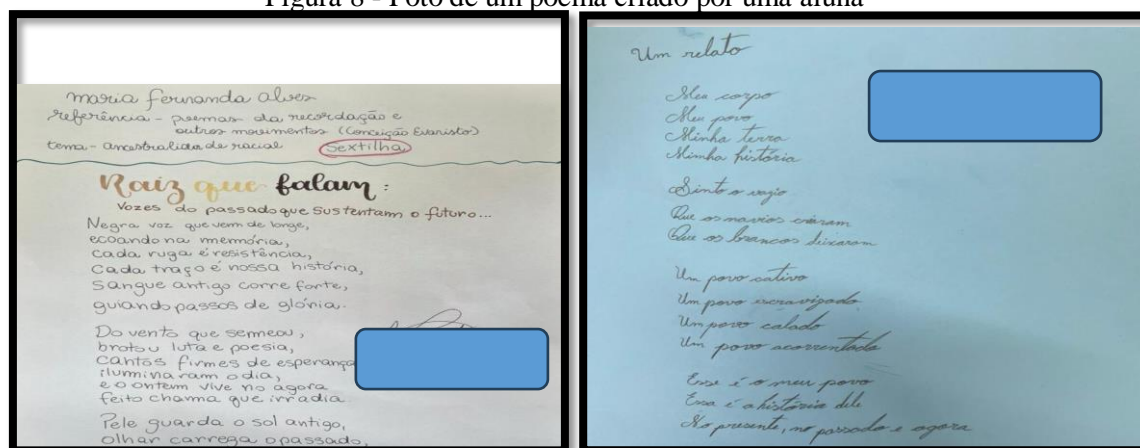 Figura 8 - Foto de um poema criado por uma aluna
maria fernanda alves
referência - poemas da recordação e
outros movimentos (Conceição Evaristo)
tema - ancestralidade racial Sextilha
Raiz que falam :
Vozes do passado que sustentam o futuro...
Negra voz que vem de longe,
ecoando na memória,
Cada ruga é resistência,
Cada traço é nossa história,
Sangue antigo corre forte,
guiando passos de glória.
Do vento que semeou,
brotou luta e poesia,
cantos firmes de esperança
iluminaram o dia,
e o ontem vive no agora
feito chama que irradia
Pele guarda o sol antigo,
olhar carrega o passado,
Um relato
Meu corpo
Meu povo
Minha terra
Minha história
Sinto o vazio
Que os navios criaram
Que os brancos deixaram
Um povo cativo
Um povo escravizado
Um povo calado
Um povo acorrentado
Esse é o meu povo
Essa é a história dele
No presente, no passado e agora